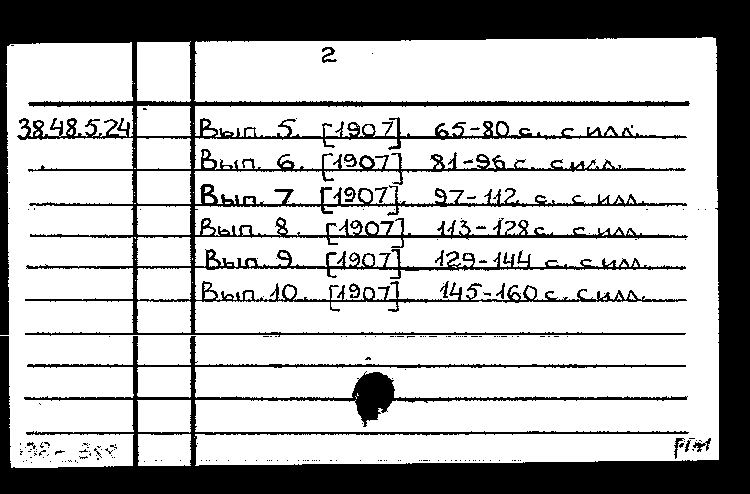 2
38.48.5.24 Вып. 5. [1907]. 65-80 с. с илл.
Вып. 6. [1907] 81-96 с. с илл.
Вып. 7 [1907]. 97-112 с. с илл.
Вып. 8. [1907]. 113-128 с. с илл.
Вып. 9. [1907] 129-144 с. с илл.
Вып. 10. [1907] 145-160 с. с илл.